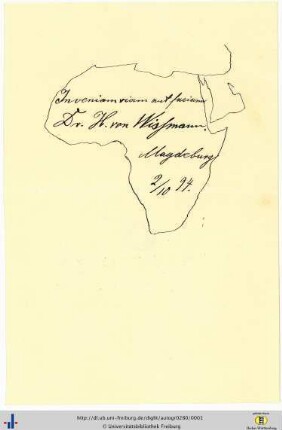 Inveniam viam aut faciam
Dr. H. von Wißmann.
Magdeburg
2/10 94.
http://dl.ub.uni-freiburg.de/diglit/autogr0280/0001
© Universitätsbibliothek Freiburg